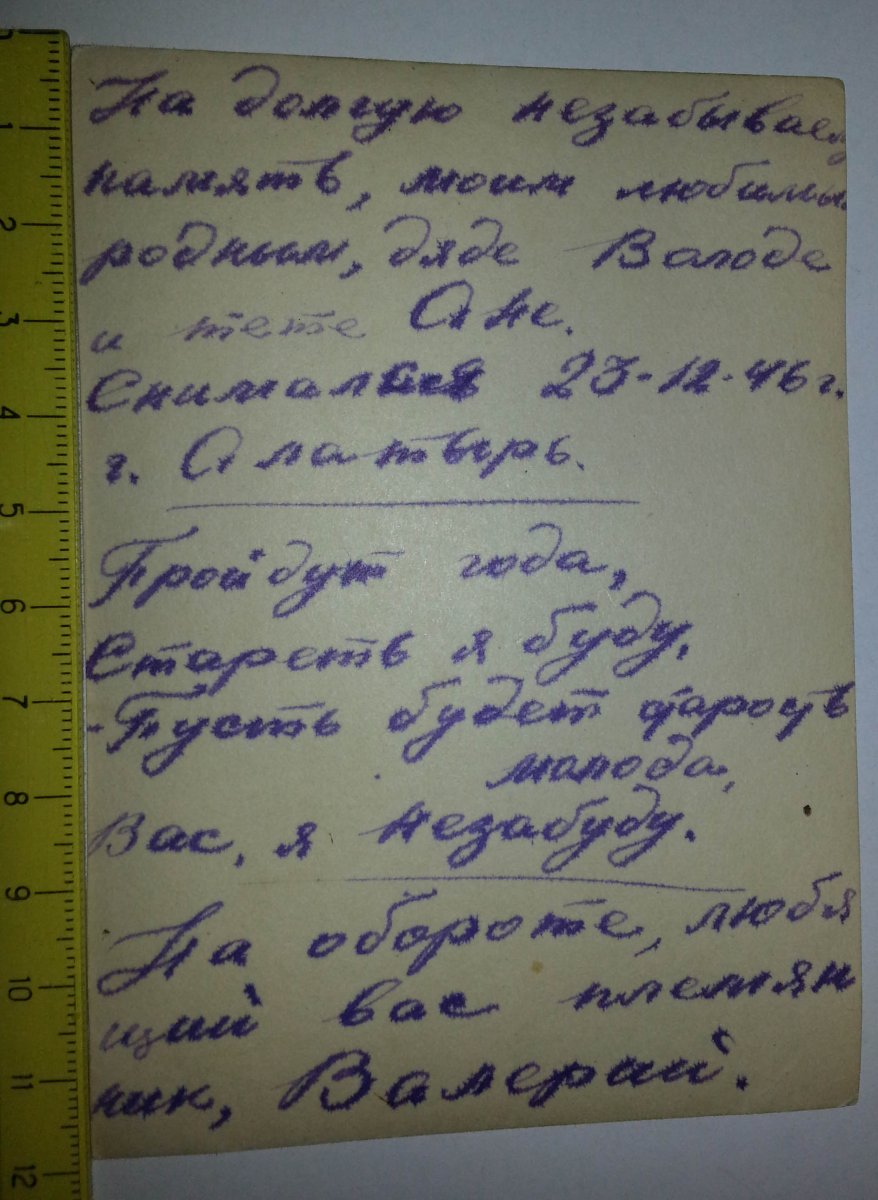 На долгую незабываему
память, моим любимым
родным, дяде Валоде
и тете Ане.
Снимался 23-12-46 г.
г. Алатырь.
Пройдут года,
Стареть я буду,
-Пусть будет старость
молода,
Вас, я незабуду.
На обороте, любя
щий вас племян
ник, Валерий.
1
2
3
4
5
6
7
8
9
10
11
12